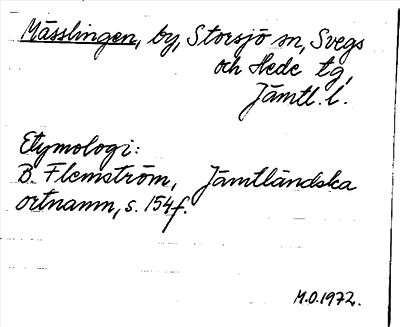 Mässlingen, by, Storsjö sn, Svegs
och Hede tg,
Jämtl. l.
Etymologi:
B. Flemström, Jämtländska
ortnamn, s. 154f.
M.O.1972.